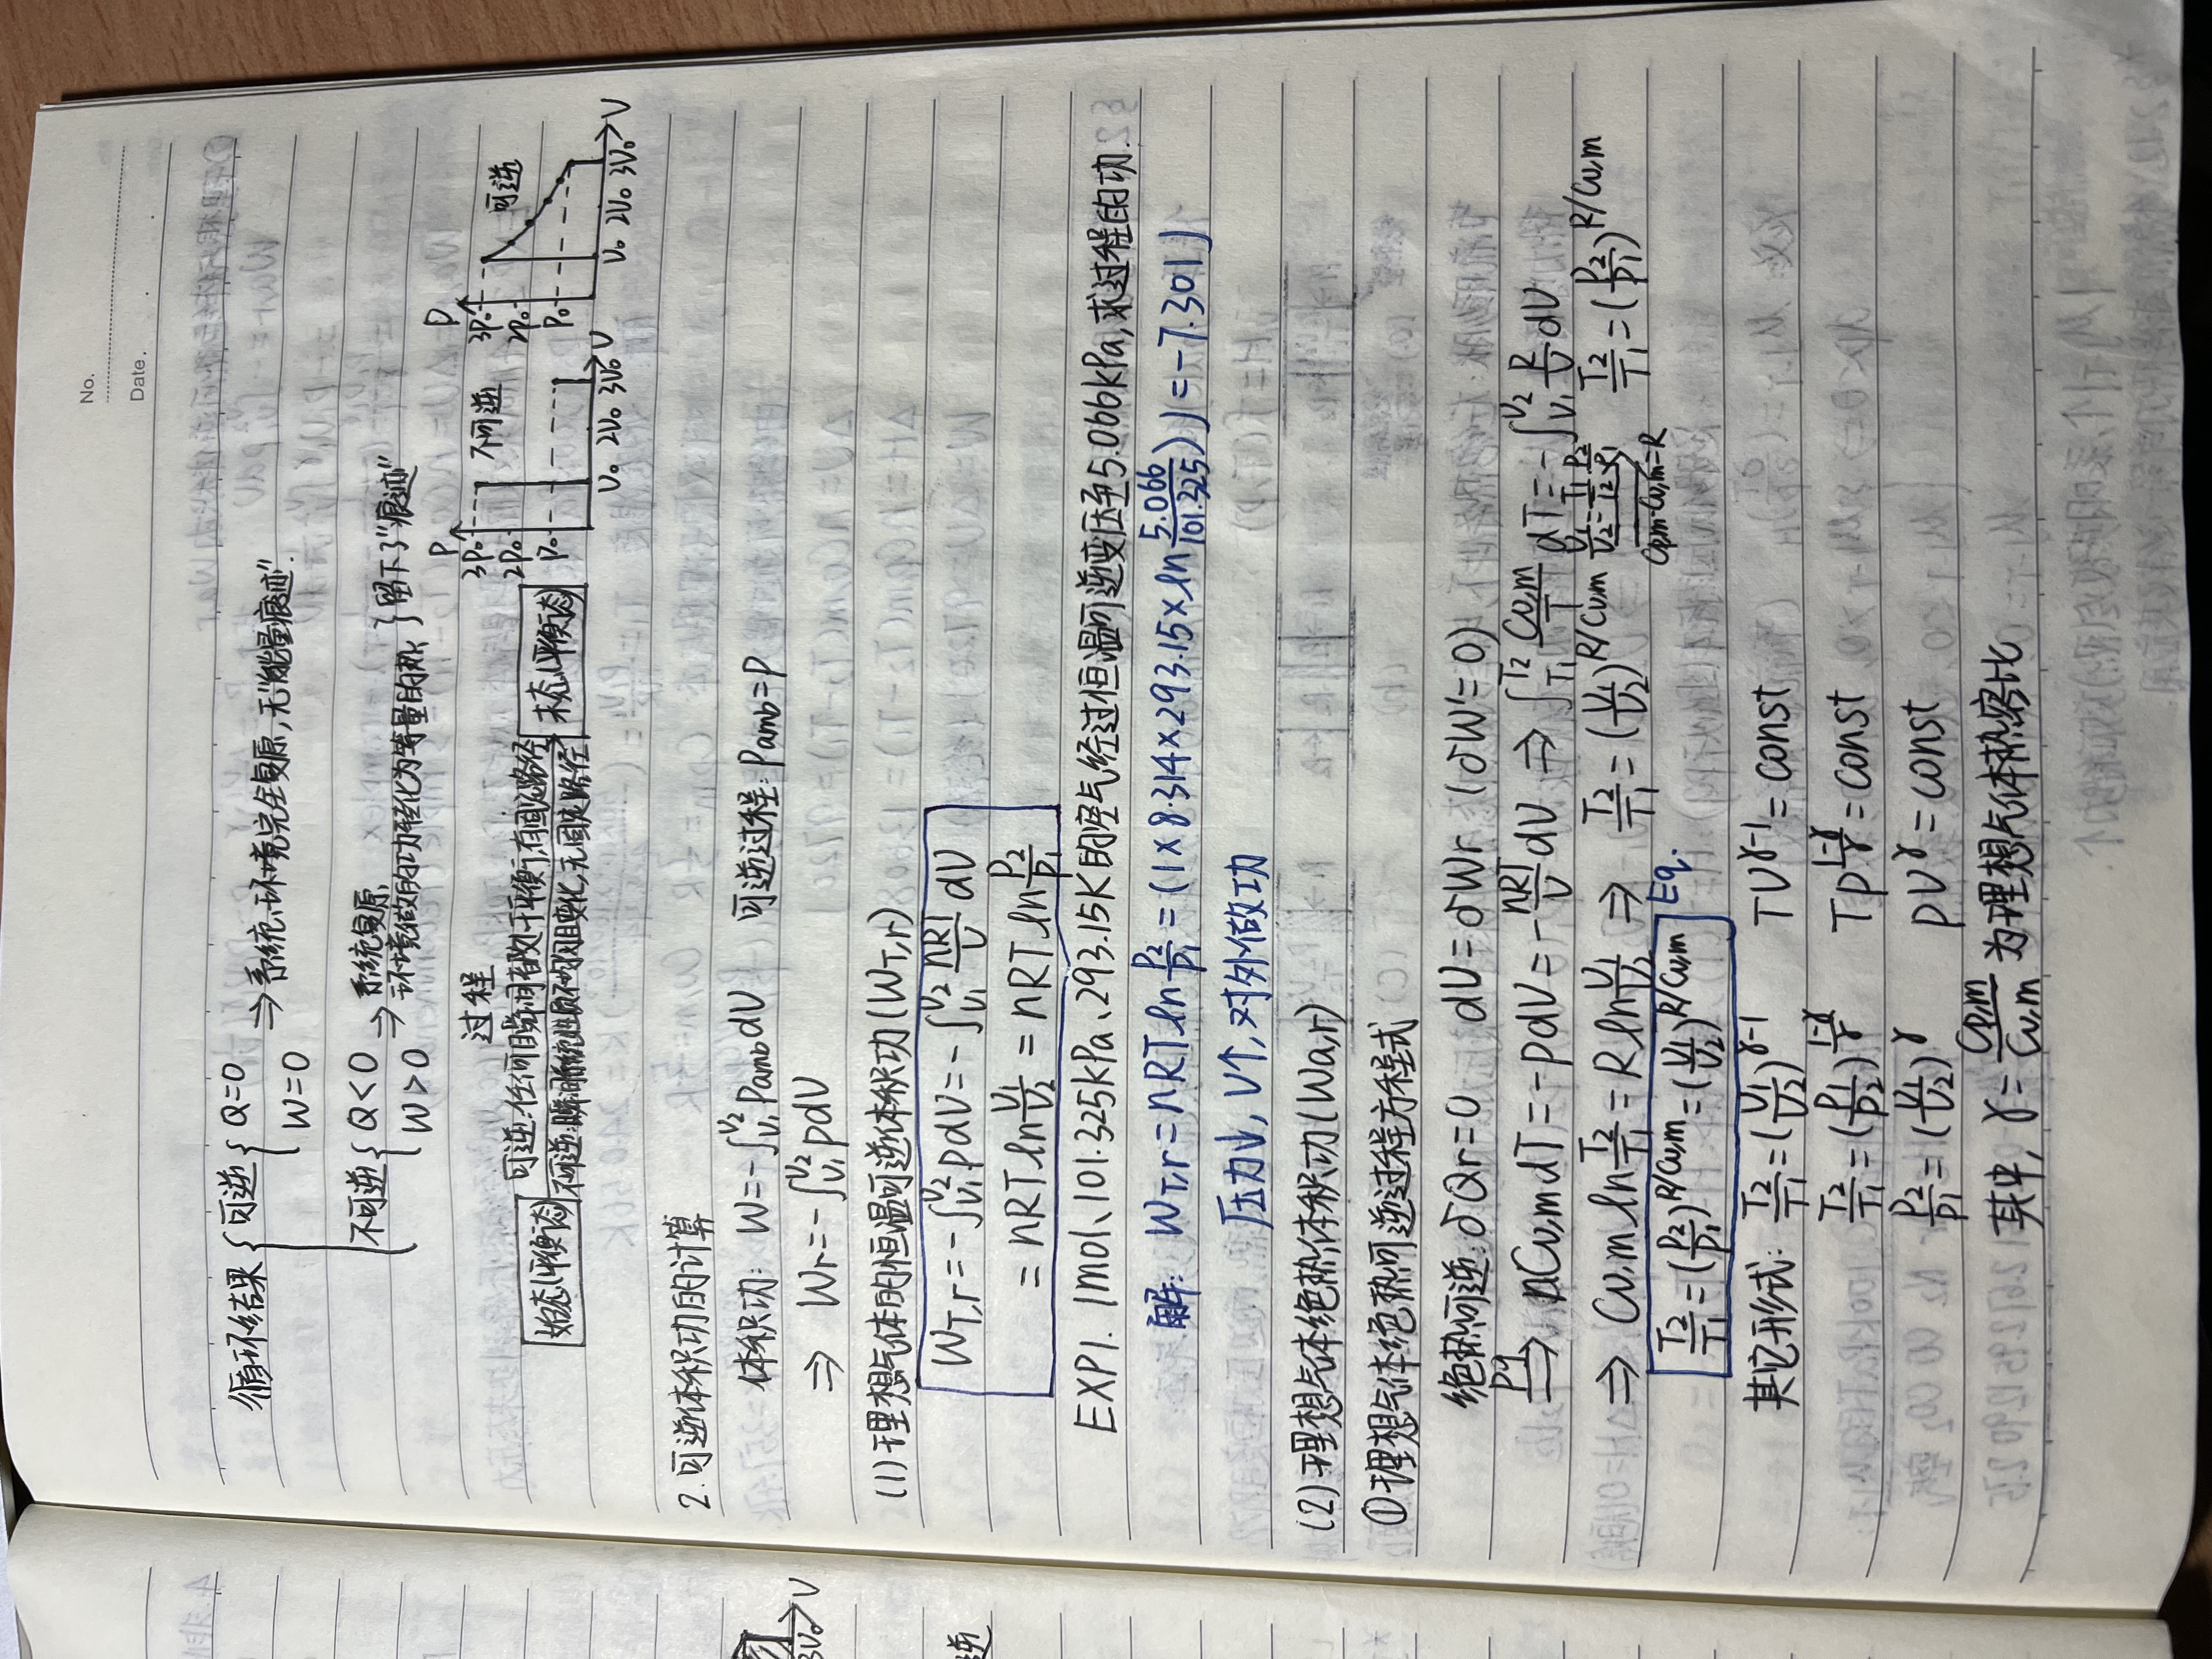 No.
Date.
循环结果 { 可逆 { Q=0
W=0 ⇒ 系统、环境完全复原,无"能量痕迹".
不可逆 { Q<0
W>0 → 系统复原,
环境做的功转化为等量的热 } 留下了"痕迹"
过程
始态(平衡态) 可逆:任何瞬间都处于平衡,有固定路径
不可逆:瞬间系统性质不均匀且变化,无固定路径 末态(平衡态)
P 3P₀ 2P₀ P₀ 不可逆 V₀ 2V₀ 3V₀ V
P 3P₀ 2P₀ P₀ 可逆 V₀ 2V₀ 3V₀ V
2.可逆体积功的计算
体积功: W=-∫_{V₁}^{V₂} p_amb dV 可逆过程: p_amb=p
⇒ Wr=-∫_{V₁}^{V₂} pdV
(1)理想气体的恒温可逆体积功(W_T,r)
W_T,r=-∫_{V₁}^{V₂} pdV=-∫_{V₁}^{V₂} nRT/V dV
= nRT ln V₁/V₂ = nRT ln P₂/P₁
EXP1. 1mol、101.325kPa、293.15K的空气经过恒温可逆变压至5.066kPa,求过程的功.
解: W_T,r=nRT ln P₂/P₁=(1×8.314×293.15×ln 5.066/101.325)J=-7.301J
压力↓, V↑, 对外做功
(2)理想气体绝热体积功(Wa,r)
①理想气体绝热可逆过程方程式
绝热可逆: δQr=0 dU=δWr (δW'=0)
pg⇒ nCv,m dT=-pdV=-nRT/V dV ⇒ ∫_{T₁}^{T₂} Cv,m/T dT=-∫_{V₁}^{V₂} R/V dV
⇒ Cv,m ln T₂/T₁=R ln V₁/V₂ ⇒ T₂/T₁=(V₁/V₂)^{R/Cv,m} V₁/V₂=T₁/T₂·P₂/P₁ Cp,m-Cv,m=R ⇒ T₂/T₁=(P₂/P₁)^{R/Cv,m}
T₂/T₁=(P₂/P₁)^{R/Cv,m}=(V₁/V₂)^{R/Cv,m} Eq.
其它形式: T₂/T₁=(V₁/V₂)^{γ-1} TV^{γ-1}=const
T₂/T₁=(P₁/P₂)^{(1-γ)/γ} Tp^{(1-γ)/γ}=const
P₂/P₁=(V₁/V₂)^γ pV^γ=const
其中, γ=Cp,m/Cv,m 为理想气体热容比
3V₀ V
逆